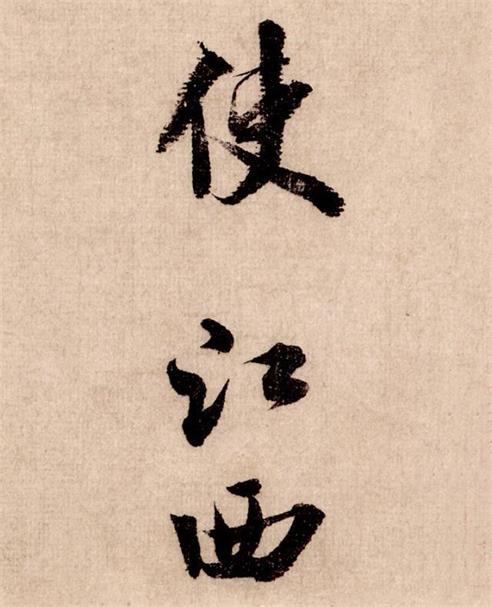 使江西